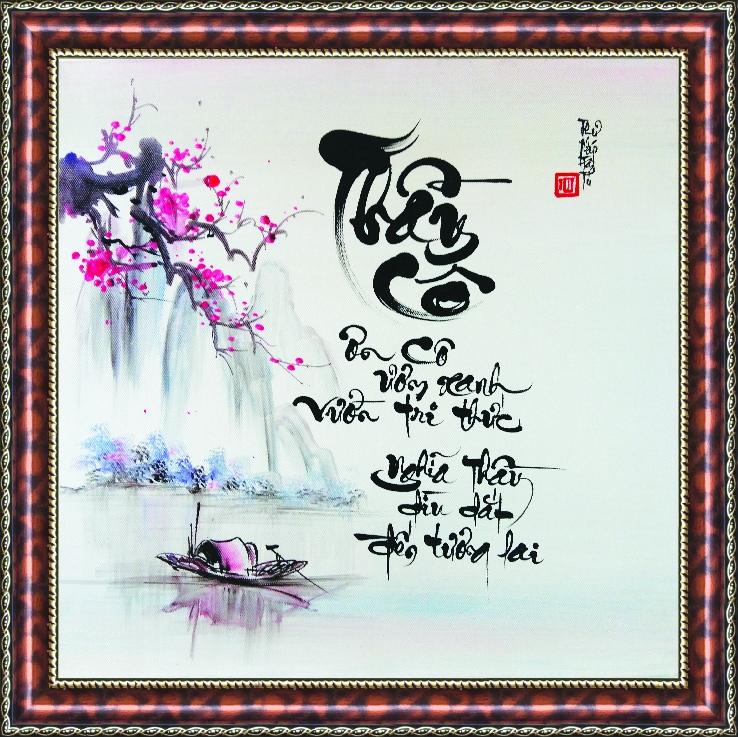 Thầy
Cô
Ơn Cô
ươm xanh
Vườn tri thức
Nghĩa Thầy
dìu dắt
đến tương lai
Thư
Pháp